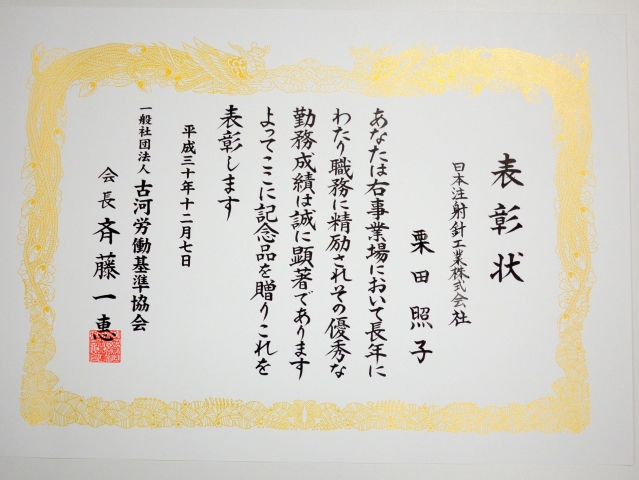 表彰状
日本注射針工業株式会社
栗田照子
あなたは右事業場において長年に
わたり職務に精励されその優秀な
勤務成績は誠に顕著であります
よってここに記念品を贈りこれを
表彰します
平成三十年十二月七日
一般社団法人 古河労働基準協会
会長 斉藤一惠